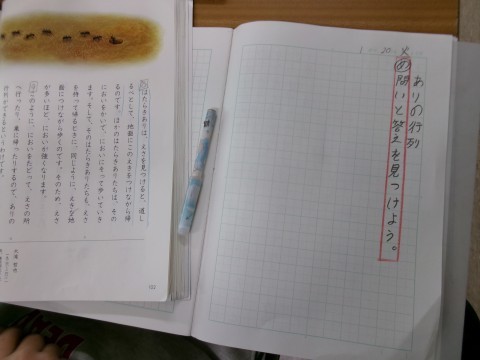 1 20 火
ありの行列
め 問いと答えを見つけよう。
⑧はたらきありは、えさを見つけると、道し
るべとして、地面にこのえきをつけながら帰
るのです。ほかのはたらきありたちも、その
においをかいで、においにそって歩いていき
ます。そして、そのはたらきありたちも、えさ
を持って帰るときに、同じように、えきを地
面につけながら歩くのです。そのため、えさ
が多いほど、においが強くなります。
⑨このように、においをたどって、えさの所
へ行ったり、巣に帰ったりするので、ありの
行列ができるというわけです。